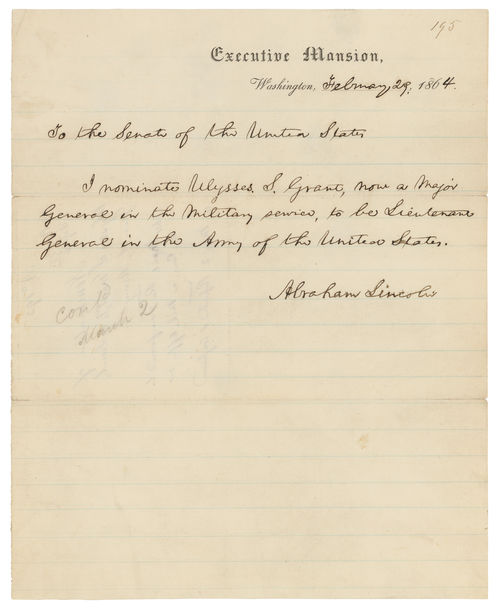 195
Executive Mansion,
Washington, February 29, 1864.
To the Senate of the United States
I nominate Ulysses. S. Grant, now a Major
General in the Military service, to be Lieutenant
General in the Army of the United States.
Abraham Lincoln
Conf'd
March 2